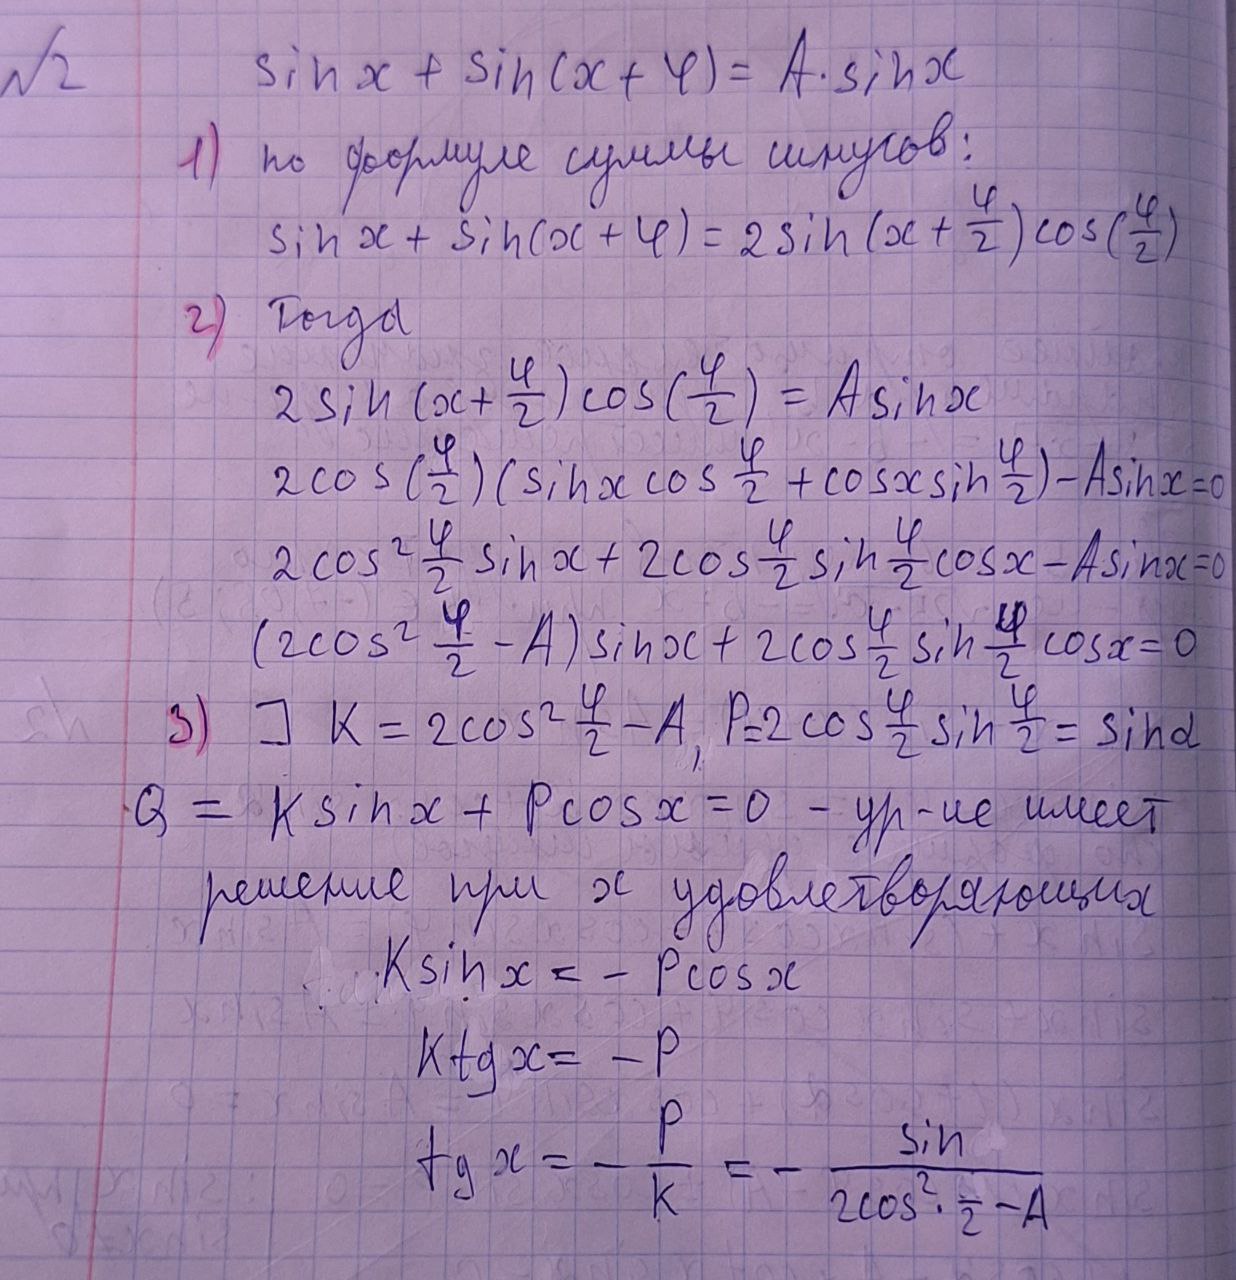 №2 sin x + sin(x + φ) = A · sin x
1) по формуле суммы синусов:
sin x + sin(x + φ) = 2 sin (x + φ/2) cos(φ/2)
2) Тогда
2 sin (x + φ/2) cos(φ/2) = A sin x
2 cos (φ/2) (sin x cos φ/2 + cos x sin φ/2) - A sin x = 0
2 cos² φ/2 sin x + 2 cos φ/2 sin φ/2 cos x - A sin x = 0
(2 cos² φ/2 - A) sin x + 2 cos φ/2 sin φ/2 cos x = 0
3) ] K = 2 cos² φ/2 - A, P = 2 cos φ/2 sin φ/2 = sin α
Q = K sin x + P cos x = 0 - ур-ие имеет
решение при x удовлетворяющих
K sin x = - P cos x
K tg x = - P
tg x = - P/K = - sin/(2 cos² · /2 - A)